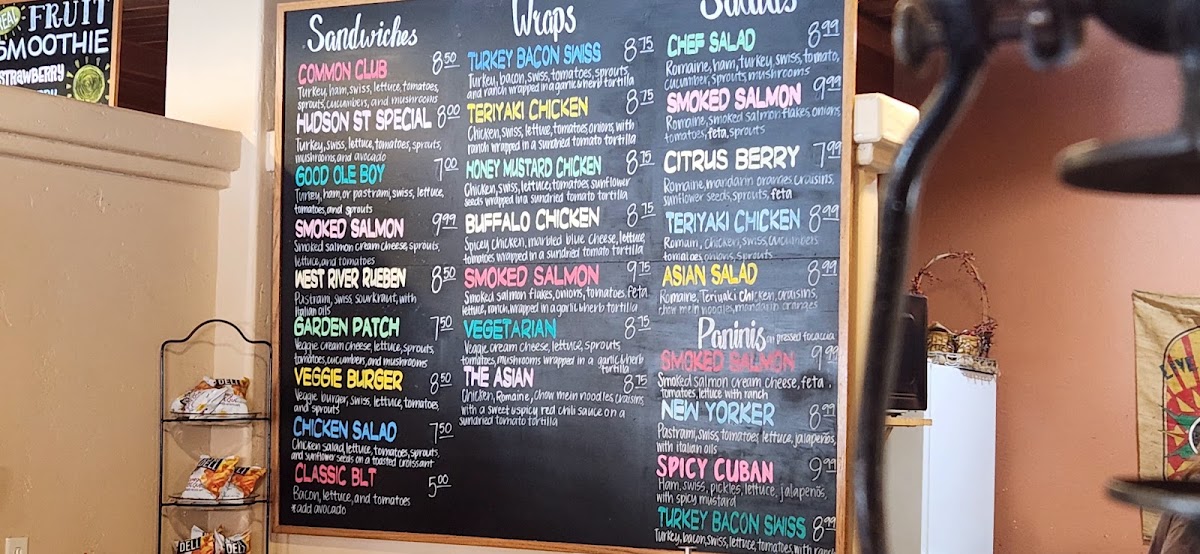 REAL FRUIT
SMOOTHIE
STRAWBERRY
Sandwiches
COMMON CLUB 8.50
Turkey, ham, swiss, lettuce, tomatoes,
sprouts, cucumbers, and mushrooms
HUDSON ST SPECIAL 8.00
Turkey, swiss, lettuce, tomatoes, sprouts,
mushrooms, and avocado
GOOD OLE BOY 7.00
Turkey, ham, or pastrami, swiss, lettuce,
tomatoes, and sprouts
SMOKED SALMON 9.99
Smoked salmon cream cheese, sprouts,
lettuce, and tomatoes
WEST RIVER RUEBEN 8.50
Pastrami, swiss, sourkraut, with
Italian oils
GARDEN PATCH 7.50
Veggie cream cheese, lettuce, sprouts,
tomatoes, cucumber, and mushrooms
VEGGIE BURGER 8.50
Veggie burger, swiss, lettuce, tomatoes,
and sprouts
CHICKEN SALAD 7.50
Chicken salad, lettuce, tomatoes, sprouts,
and sunflower seeds on a toasted croissant
CLASSIC BLT 5.00
Bacon, lettuce, and tomatoes
*add avocado
Wraps
TURKEY BACON SWISS 8.75
Turkey, bacon, swiss, tomatoes, sprouts,
and ranch wrapped in a garlic & herb tortilla
TERIYAKI CHICKEN 8.75
Chicken, swiss, lettuce, tomatoes, onions, with
ranch wrapped in a sundried tomato tortilla
HONEY MUSTARD CHICKEN 8.75
Chicken, swiss, lettuce, tomatoes, sunflower
seeds wrapped in a sundried tomato tortilla
BUFFALO CHICKEN 8.75
Spicey chicken, marbled blue cheese, lettuce,
tomatoes wrapped in a sundried tomato tortilla
SMOKED SALMON 9.75
Smoked salmon flakes, onions, tomatoes, feta,
lettuce, ranch, wrapped in a garlic & herb tortilla
VEGETARIAN 8.75
Veggie cream cheese, lettuce, sprouts,
tomatoes, mushrooms wrapped in a garlic & herb
tortilla
THE ASIAN 8.75
Chicken, Romaine, chow mein noodles, craisins,
with a sweet & spicy red chili sauce on a
sundried tomato tortilla
Salads
CHEF SALAD 8.99
Romaine, ham, turkey, swiss, tomato,
cucumber, sprouts, mushrooms
SMOKED SALMON 9.99
Romaine, smoked salmon flakes, onions,
tomatoes, feta, sprouts
CITRUS BERRY 7.99
Romaine, mandarin oranges, craisins,
sunflower seeds, sprouts, feta
TERIYAKI CHICKEN 8.99
Romain, chicken, swiss, cucumbers
tomatoes, onions, sprouts
ASIAN SALAD 8.99
Romaine, Teriyaki chicken, craisins,
chow mein noodles, mandarin oranges
Paninis on pressed focaccia
SMOKED SALMON 9.99
Smoked salmon cream cheese, feta,
tomatoes, lettuce with ranch
NEW YORKER 8.99
Pastrami, swiss, tomatoes, lettuce, jalapeños,
with italian oils
SPICY CUBAN 9.99
Ham, swiss, pickles, lettuce, jalapeños,
with spicy mustard
TURKEY BACON SWISS 8.99
Turkey, bacon, swiss, lettuce, tomatoes with ranch
DELI
DELI
DELI
LIVE